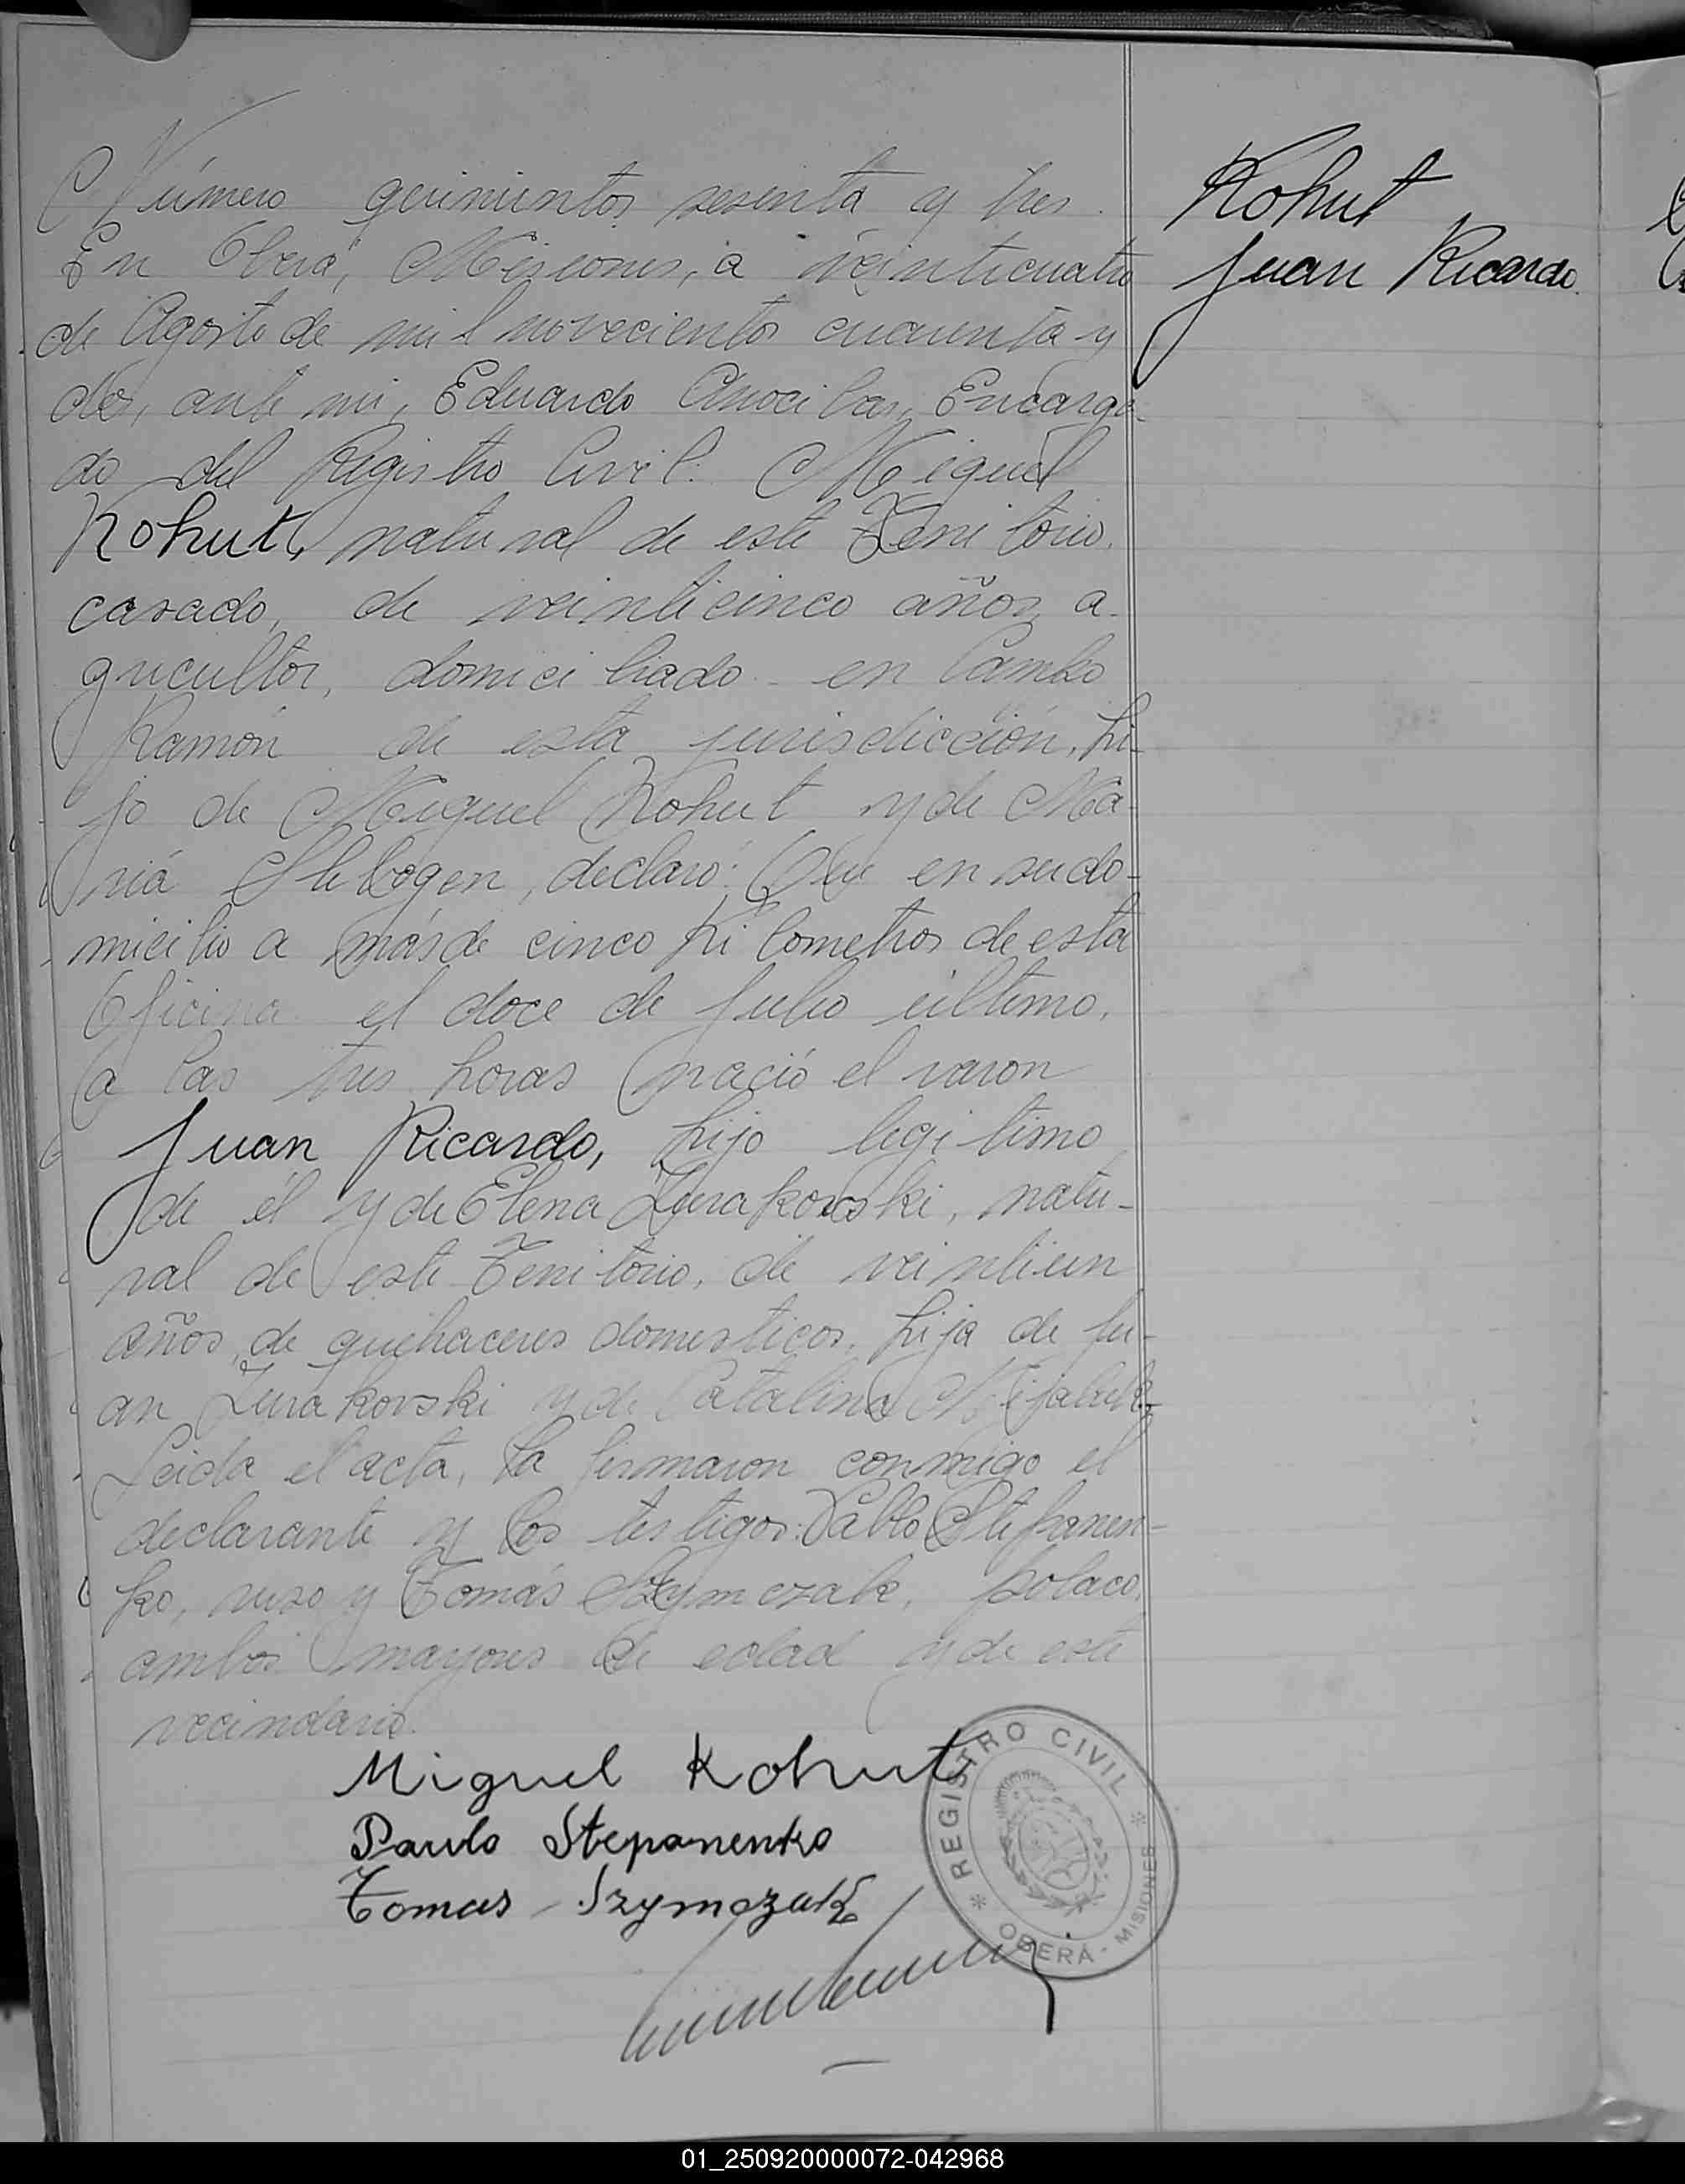 Número quinientos sesenta y tres.
En Oberá, Misiones, a veinticuatro
de Agosto de mil novecientos cuarenta y
dos, ante mi, Eduardo Encarga-
do del Registro Civil: Miguel
Kohut, natural de este Territorio,
casado, de veinticinco años, a-
gricultor, domiciliado en Campo
Ramón de esta jurisdicción, hi-
jo de Miguel Kohut y de Ma-
ría declaró: Que en su do-
micilio a más de cinco kilometros de esta
Oficina el doce de Julio último,
a las tres horas nació el varon
Juan Ricardo, hijo legitimo
de él y de Elena Zurakowski, natu-
ral de este Territorio, de veintiun
años, de quehaceres domesticos, hija de Ju-
an Zurakovski y de Catalina
Leida el acta, la firmaron conmigo el
declarante y los testigos: Pablo Stepanen-
ko, ruso y Tomás Szymczak, polaco,
ambos mayores de edad y de este
vecindario.
Miguel Kohut
Paulo Stepanenko
Tomas Szymczak
REGISTRO CIVIL
* OBERÁ - MISIONES *
Kohut
Juan Ricardo.
01_250920000072-042968